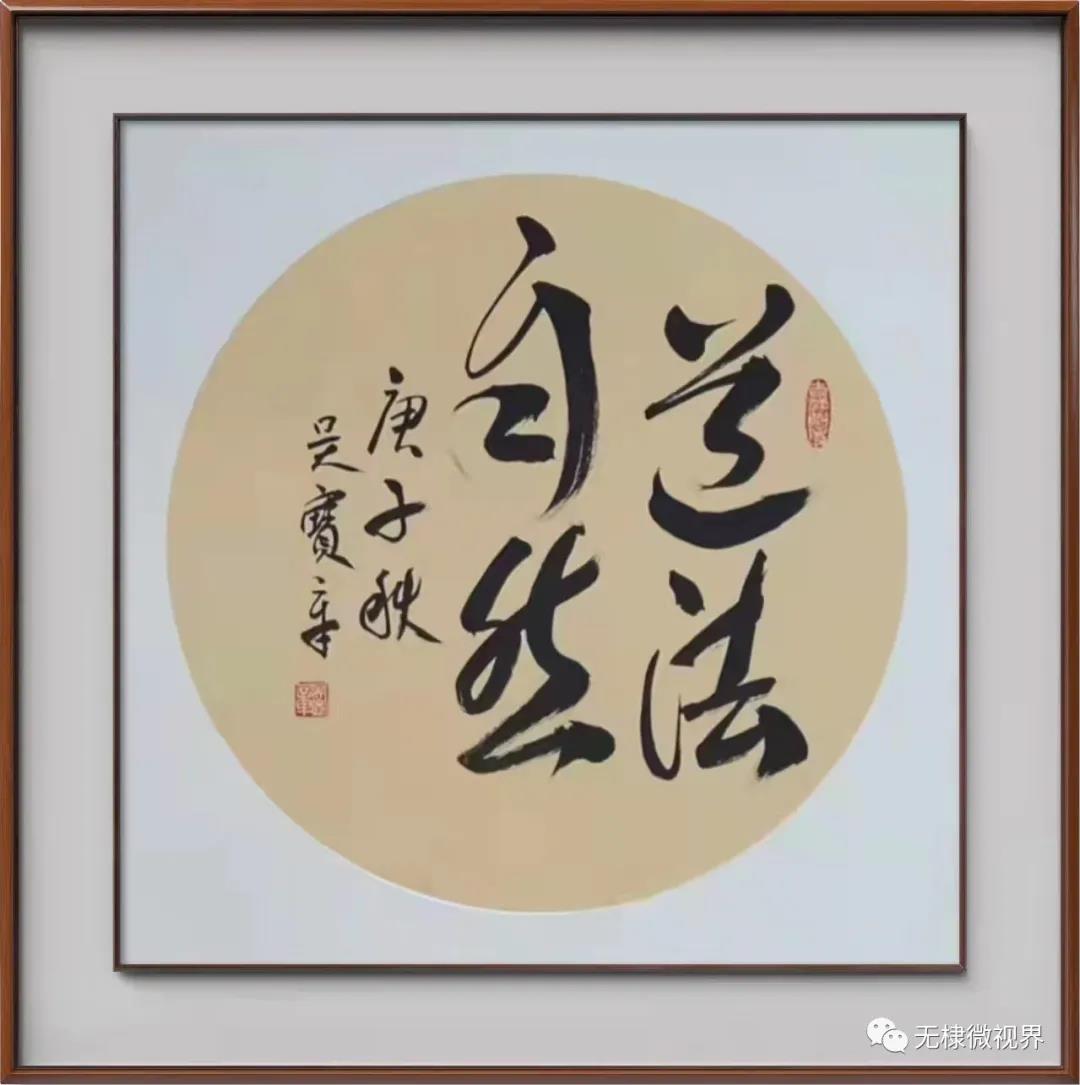 道法
自然
庚子秋
吴寶章
无棣微视界